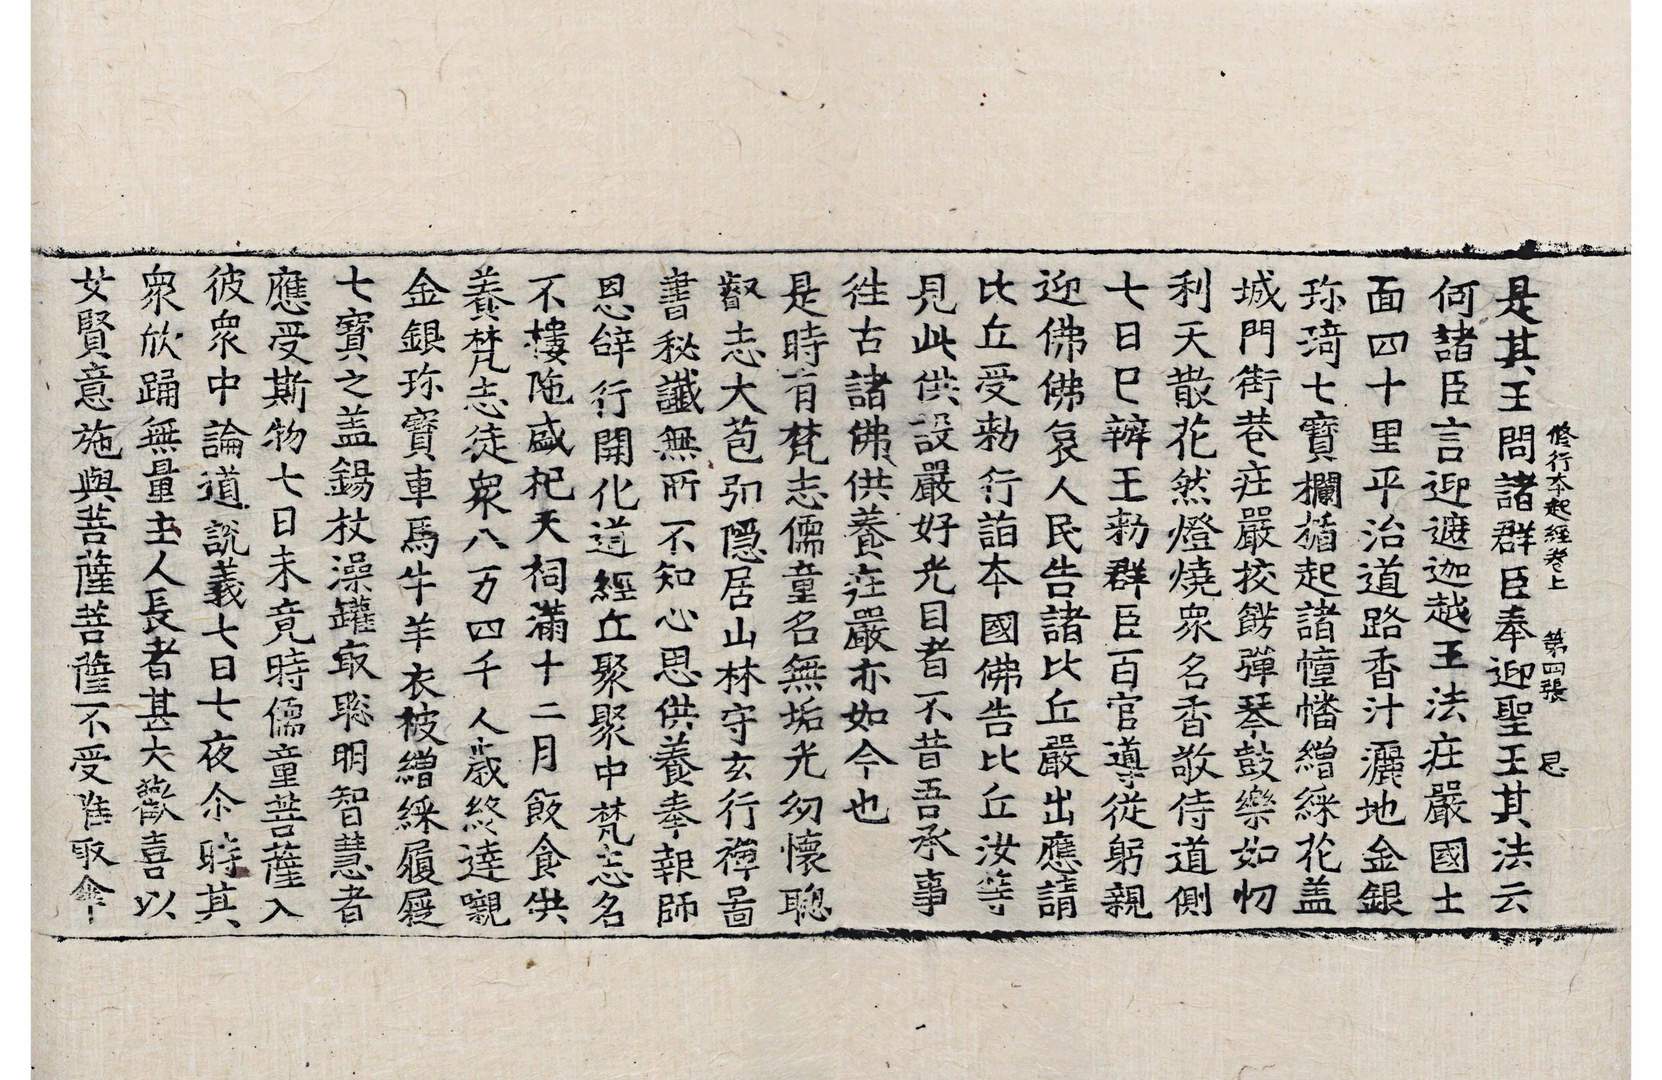 修行本起經卷上　第四張　思
是其王問諸群臣奉迎聖王其法云
何諸臣言迎遮迦越王法庄嚴國土
面四十里平治道路香汁灑地金銀
珎琦七寶欄楯起諸幢幡繒綵花盖
城門街巷庄嚴挍餝彈琴鼓樂如忉
利天散花然燈燒衆名香敬侍道側
七日已辦王勑群臣百官導從躬親
迎佛佛哀人民告諸比丘嚴出應請
比丘受勑行詣本國佛告比丘汝等
見此供設嚴好光目者不昔吾承事
徃古諸佛供養庄嚴亦如今也
是時有梵志儒童名無垢光幼懷聰
叡志大苞弘隱居山林守玄行禪啚
書秘讖無所不知心思供養奉報師
恩辝行開化道經丘聚聚中梵志名
不樓陁盛祀天祠滿十二月飯食供
養梵志徒衆八万四千人歲終達嚫
金銀珎寶車馬牛羊衣被繒綵履屣
七寶之盖錫杖澡罐㝡聡明智慧者
應受斯物七日未竟時儒童菩薩入
彼衆中論道說義七日七夜尒時其
衆欣踊無量主人長者甚大歡喜以
女賢意施與菩薩菩薩不受唯取傘